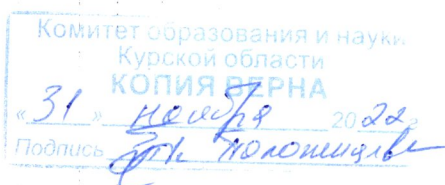 Комитет образования и науки
Курской области
КОПИЯ ВЕРНА
« 31 » ноября 2022 г.
Подпись